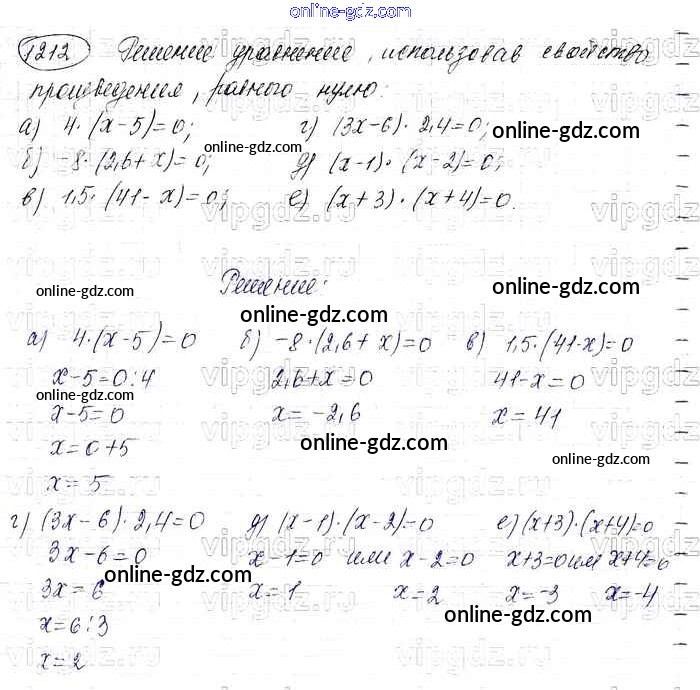 online-gdz.com
1212 Решение уравнение, использовав свойство
произведения, равного нулю:
а) 4·(x-5)=0; г) (3x-6)·2,4=0;
online-gdz.com
б) -8·(2,6+x)=0; д) (x-1)·(x-2)=0;
в) 1,5·(41-x)=0; е) (x+3)·(x+4)=0.
Решение:
online-gdz.com online-gdz.com
online-gdz.com
а) 4·(x-5)=0 б) -8·(2,6+x)=0 в) 1,5·(41-x)=0
x-5=0:4 2,6+x=0 41-x=0
online-gdz.com
x-5=0 x=-2,6 x=41
online-gdz.com
x=0+5
online-gdz.com
x=5
г) (3x-6)·2,4=0 д) (x-1)·(x-2)=0 е) (x+3)·(x+4)=0
3x-6=0 x-1=0 или x-2=0 x+3=0 или x+4=0
online-gdz.com
3x=6 x=1 x=2 x=-3 x=-4
online-gdz.com
x=6:3
x=2
online-gdz.com
vipgdz.ru